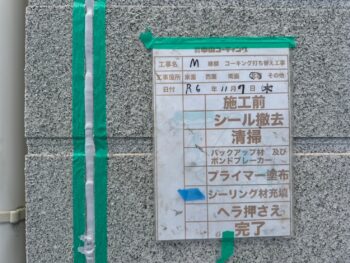 コーキング
工事名 M 様邸 コーキング打ち替え工事
工事箇所 東面 西面 南面 北面 その他
日付 R6 年 11月 7日(木)
施工前
シール撤去
清掃
バックアップ材 及び
ボンドブレーカー
プライマー塗布
シーリング材充填
ヘラ押さえ
完了